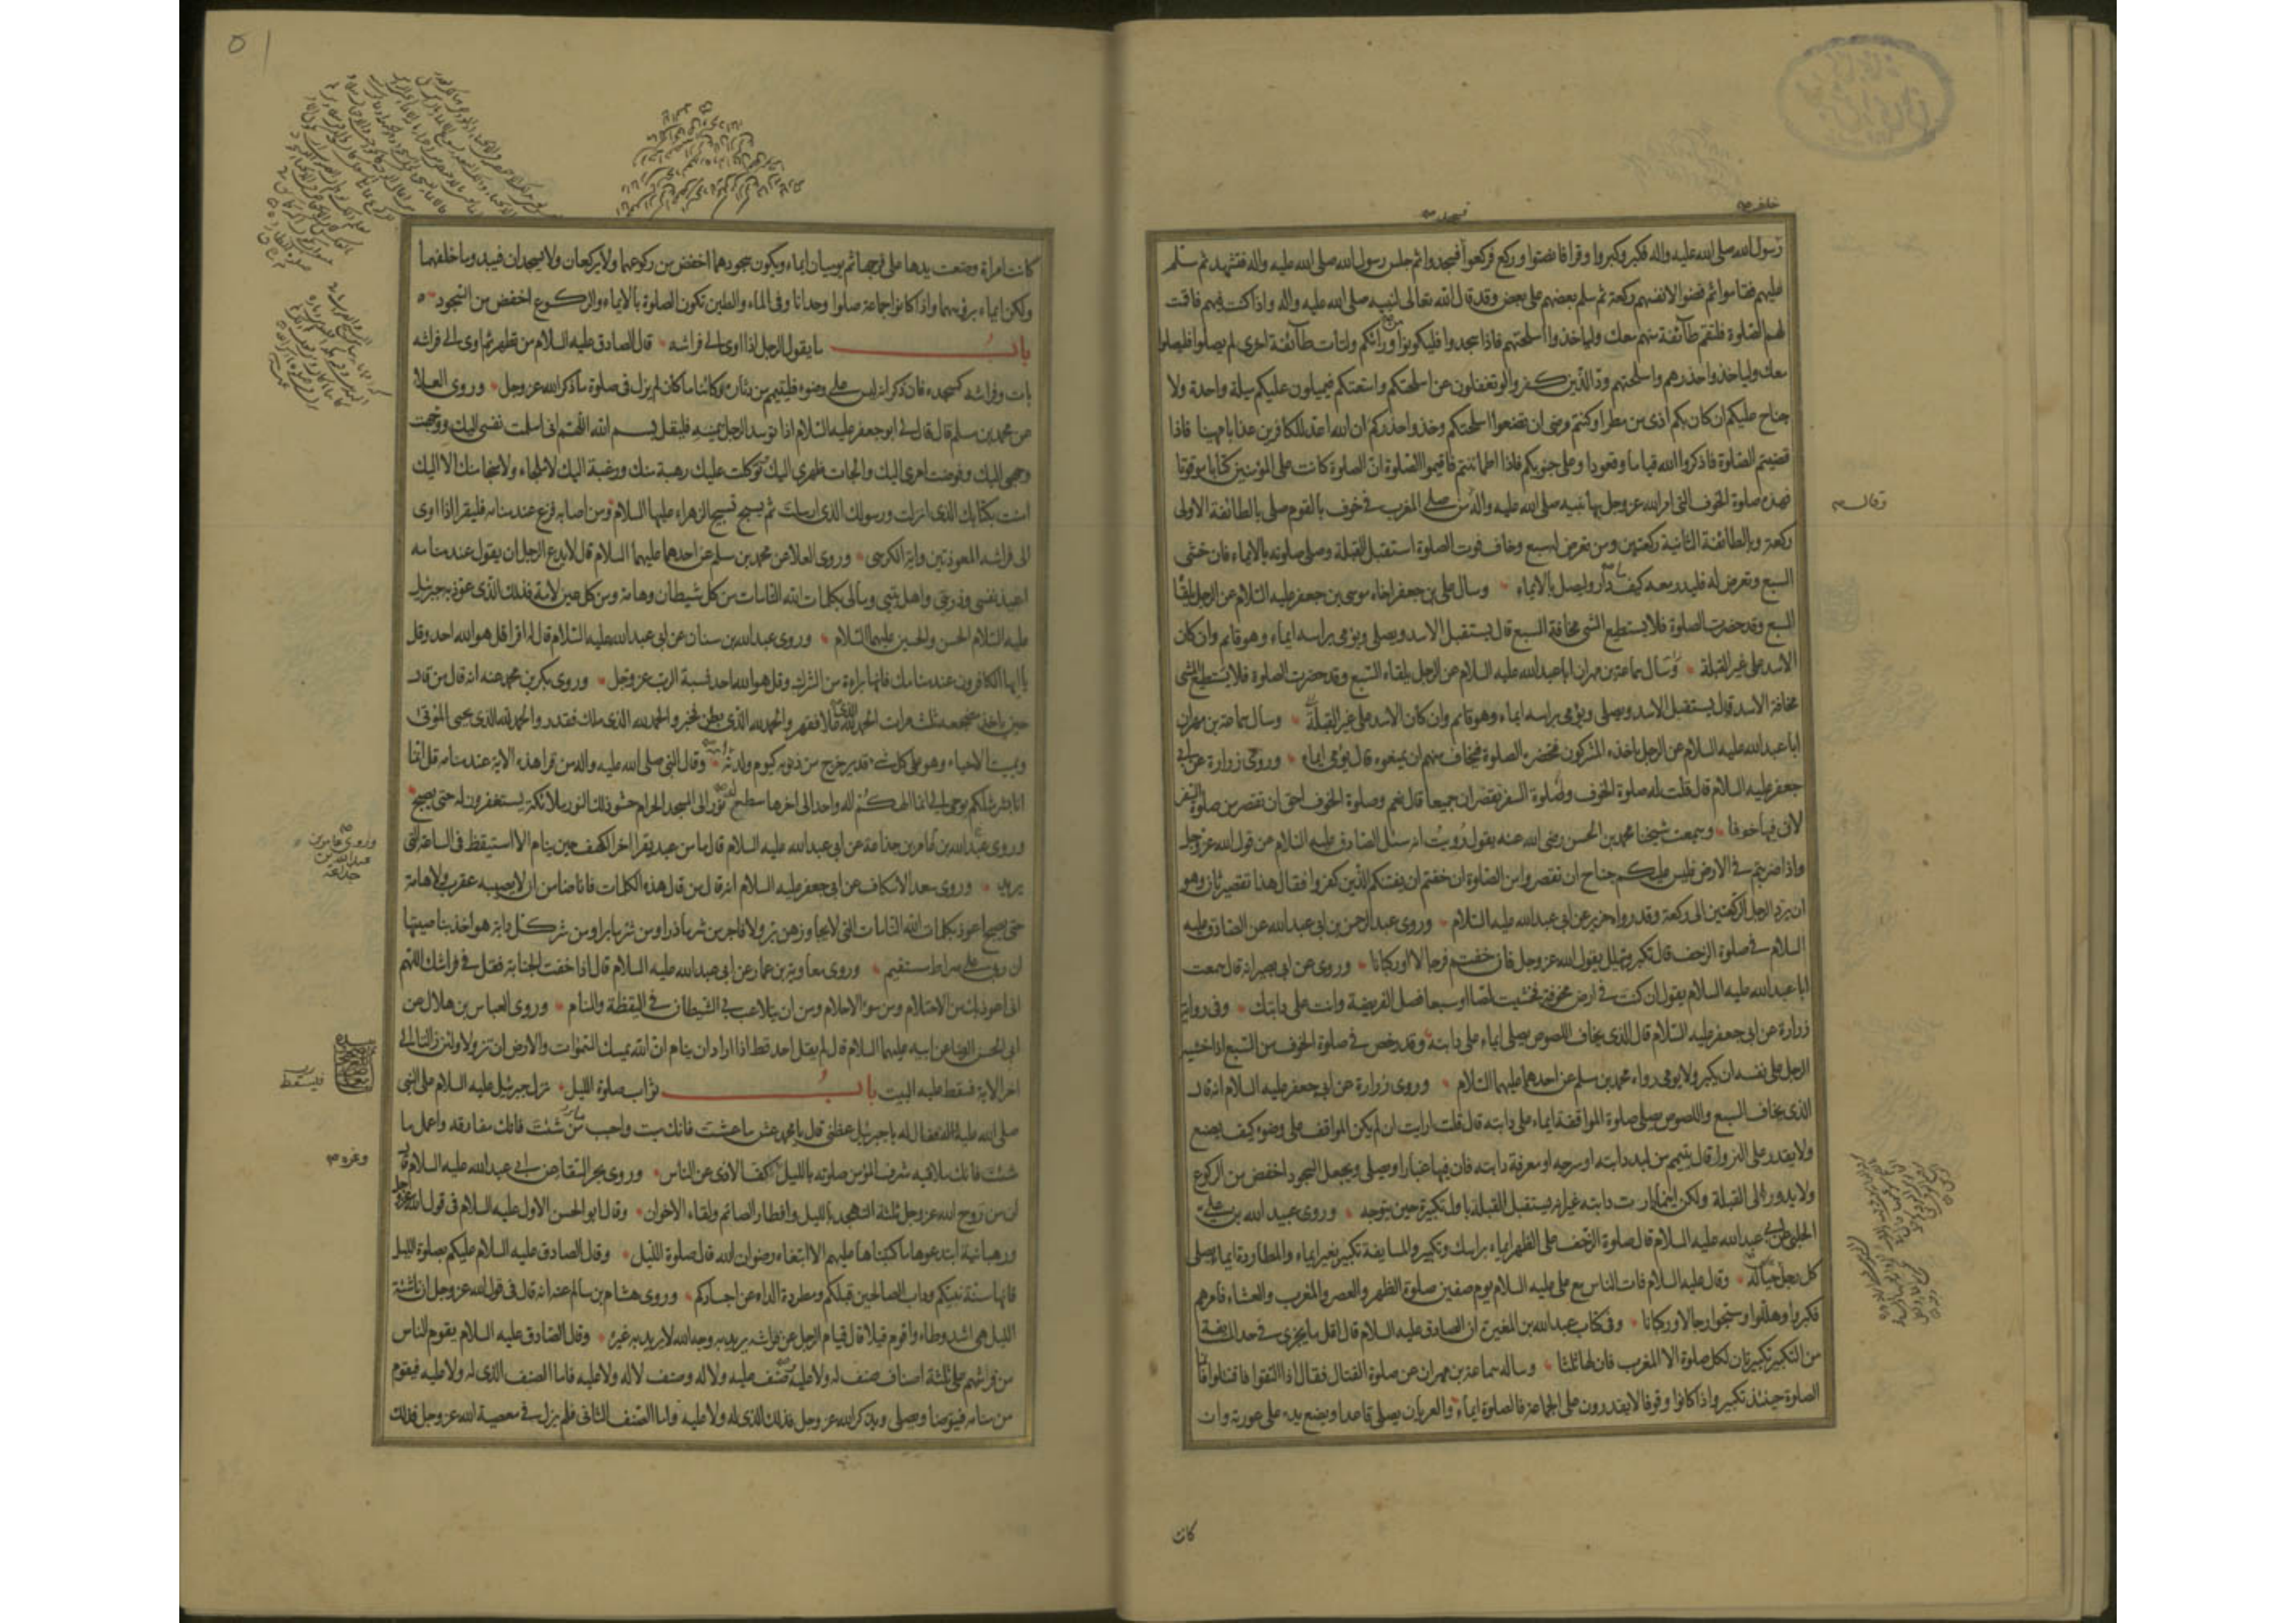 خلفه
فسجد
رسول الله صلى الله عليه واله فكبر وكبروا وقرا فانصتوا وركع فركعوا فسجد وا ثم جلس رسول الله صلى الله عليه واله فتشهد ثم سلم
عليهم فقاموا ثم قضوا لانفسهم ركعة ثم سلم بعضهم على بعض وقد قال الله تعالى لنبيه صلى الله عليه واله واذا كنت فيهم فاقمت
لهم الصلوة فلتقم طآئفة منهم معك ولياخذوا اسلحتهم فاذا سجدوا فليكونوا من ورائكم ولتات طآئفة اخرى لم يصلوا فليصلوا
معك ولياخذوا حذرهم واسلحتهم ودّ الذين كفروا لو تغفلون عن اسلحتكم وامتعتكم فيميلون عليكم ميلة واحدة ولا
جناح عليكم ان كان بكم اذى من مطر او كنتم مرضى ان تضعوا اسلحتكم وخذوا حذركم ان الله اعد للكافرين عذابا مهينا فاذا
قضيتم الصلوة فاذكروا الله قياما وقعودا وعلى جنوبكم فاذا اطماننتم فاقيموا الصلوة ان الصلوة كانت على المؤمنين كتابا موقوتا
فهذه صلوة الخوف التى امر الله عز وجل بها نبيه صلى الله عليه واله من صلى المغرب فى خوف بالقوم صلى بالطائفة الاولى
وقال
ركعة وبالطائفة الثانية ركعتين ومن تعرض له سبع وخاف فوت الصلوة استقبل القبلة وصلى صلوته بالايماء فان خشى
السبع وتعرض له فليدر معه كيف دار وليصل بالايماء وسال على بن جعفر اخاه موسى بن جعفر عليه السلام عن الرجل يلقا
السبع وقد حضرت الصلوة فلا يستطيع المشى مخافة السبع قال يستقبل الاسد ويصلى ويومى براسه ايماء وهو قايم وان كان
الاسد على غير القبلة وسال سماعة بن مهران ابا عبد الله عليه السلام عن الرجل يلقاه السبع وقد حضرت الصلوة فلا يستطيع المشى
مخافة الاسد قال يستقبل الاسد ويصلى ويومى براسه ايماء وهو قايم وان كان الاسد على غير القبلة وسال سماعة بن مهران
ابا عبد الله عليه السلام عن الرجل ياخذه المشركون فتحضره الصلوة فيخاف منهم ان يمنعوه قال يومى ايماء وروى زرارة عن ابى
جعفر عليه السلام قال قلت له صلوة الخوف وصلوة السفر تقصران جميعا قال نعم وصلوة الخوف احق ان تقصر من صلوة السفر
لان فيها خوفا وسمعت شيخنا محمد بن الحسن رضى الله عنه يقول رويت انه سئل الصادق عليه السلام عن قول الله عز وجل
واذا ضربتم فى الارض فليس عليكم جناح ان تقصروا من الصلوة ان خفتم ان يفتنكم الذين كفروا فقال هذا تقصير ثان وهو
ان يرد الرجل الركعتين الى ركعة وقد رواه حريز عن ابى عبد الله عليه السلام وروى عبد الرحمن بن ابى عبد الله عن الصادق عليه
السلام فى صلوة الزحف قال تكبر وتهلل يقول الله عز وجل فان خفتم فرجالا او ركبانا وروى عن ابى بصير انه قال سمعت
ابا عبد الله عليه السلام يقول ان كنت فى ارض مخوفة فخشيت لصا او سبعا فصل الفريضة وانت على دابتك وفى رواية
زرارة عن ابى جعفر عليه السلام قال الذى يخاف اللصوص يصلى ايماء على دابته وقد رخص فى صلوة الخوف من السبع اذا خشيه
الرجل على نفسه ان يكبر ولا يومى رواه محمد بن مسلم عن احدهما عليهما السلام وروى زرارة عن ابى جعفر عليه السلام انه قال
الذى يخاف السبع واللصوص يصلى صلوة المواقفة ايماء على دابته قال قلت ارايت ان لم يكن المواقف على وضوء كيف يصنع
ولا يقدر على النزول قال يتيمم من لبد دابته او سرجه او معرفة دابته فان فيها غبارا ويصلى ويجعل السجود اخفض من الركوع
ولا يدور الى القبلة ولكن اينما دارت دابته غير انه يستقبل القبلة باول تكبيرة حين يتوجه وروى عبيد الله بن على
الحلبى عن ابى عبد الله عليه السلام قال صلوة الزحف على الظهر ايماء براسك وتكبير والمسايفة تكبير بغير ايماء والمطاردة ايماء يصلى
كل رجل حياله وقال عليه السلام فات الناس مع على عليه السلام يوم صفين صلوة الظهر والعصر والمغرب والعشاء فامرهم
فكبروا وهللوا وسبحوا رجالا وركبانا وفى كتاب عبد الله بن المغيرة ان الصادق عليه السلام قال اقل ما يجزى فى حد المسايفة
من التكبير تكبيرتان لكل صلوة الا المغرب فان لها ثلثا وساله سماعة بن مهران عن صلوة القتال فقال اذا التقوا فاقتتلوا فان
الصلوة حينئذ تكبير واذا كانوا وقوفا لا يقدرون على الجماعة فالصلوة ايماء والعريان يصلى قاعدا ويضع يده على عورته وان
كانت
٥١
كانت امراة وضعت يدها على فرجها ثم يوميان ايماء ويكون سجودهما اخفض من ركوعهما ولا يركعان ولا يسجدان فيبدو ما خلفهما
ولكن ايماء برؤسهما واذا كانوا جماعة صلوا وحدانا وفى الماء والطين تكون الصلوة بالايماء والركوع اخفض من السجود
باب ما يقول الرجل اذا اوى الى فراشه قال الصادق عليه السلام من تطهر ثم اوى الى فراشه
بات وفراشه كمسجده فان ذكر انه ليس على وضوء فليتيمم من دثاره كائنا ما كان لم يزل فى صلوة ما ذكر الله عز وجل وروى العلا
عن محمد بن مسلم قال قال لى ابو جعفر عليه السلام اذا توسد الرجل يمينه فليقل بسم الله اللهم انى اسلمت نفسى اليك ووجهت
وجهى اليك وفوضت امرى اليك والجات ظهرى اليك توكلت عليك رهبة منك ورغبة اليك لا ملجاء ولا منجا منك الا اليك
امنت بكتابك الذى انزلت ورسولك الذى ارسلت ثم يسبح تسبيح الزهراء عليها السلام ومن اصابه فزع عند منامه فليقرا اذا اوى
الى فراشه المعوذتين واية الكرسى وروى العلا عن محمد بن مسلم عن احدهما عليهما السلام قال لا يدع الرجل ان يقول عند منامه
اعيذ نفسى وذريتى واهل بيتى ومالى بكلمات الله التامات من كل شيطان وهامة ومن كل عين لامة فذلك الذى عوذ به جبرئيل
عليه السلام الحسن والحسين عليهما السلام وروى عبد الله بن سنان عن ابى عبد الله عليه السلام قال له اقرا قل هو الله احد وقل
يا ايها الكافرون عند منامك فانها براءة من الشرك وقل هو الله احد نسبة الرب عز وجل وروى بكر بن محمد عنه انه قال من قال
حين ياخذ مضجعه ثلث مرات الحمد لله الذى علا فقهر والحمد لله الذى بطن فخبر والحمد لله الذى ملك فقدر والحمد لله الذى يحيى الموتى
ويميت الاحياء وهو على كل شىء قدير خرج من ذنوبه كيوم ولدته امه وقال النبى صلى الله عليه واله من قرا هذه الاية عند منامه قل انما
انا بشر مثلكم يوحى الى انما الهكم اله واحد الى اخرها سطع له نور الى المسجد الحرام حشو ذلك النور ملائكة يستغفرون له حتى يصبح
وروى عبد الله بن عامر بن جذاعة عن ابى عبد الله عليه السلام قال ما من عبد يقرا اخر الكهف حين ينام الا استيقظ فى الساعة التى
وروى عامر بن
عبد الله بن
جذاعة
يريد وروى سعد الاسكاف عن ابى جعفر عليه السلام انه قال من قال هذه الكلمات فانا ضامن ان لا يصيبه عقرب ولا هامة
حتى يصبح اعوذ بكلمات الله التامات التى لا يجاوزهن بر ولا فاجر من شر ما ذرا ومن شر ما برا ومن شر كل دابة هو اخذ بناصيتها
ان ربى على صراط مستقيم وروى معاوية بن عمار عن ابى عبد الله عليه السلام قال اذا خفت الجنابة فقل فى فراشك اللهم
انى اعوذ بك من الاحتلام ومن سوء الاحلام ومن ان يتلاعب بى الشيطان فى اليقظة والمنام وروى العباس بن هلال عن
ابى الحسن الرضا عن ابيه عليهما السلام قال لم يقل احد قط اذا اراد ان ينام ان الله يمسك السموات والارض ان تزولا ولئن زالتا الى
اخر الاية فسقط عليه البيت باب ثواب صلوة الليل نزل جبرئيل عليه السلام على النبى
فيسقط
صلى الله عليه واله فقال له يا جبرئيل عظنى قال يا محمد عش ما عشت فانك ميت واحبب من شئت فانك مفارقه واعمل ما
شئت فانك ملاقيه شرف المؤمن صلوته بالليل كف الاذى عن الناس وروى بحر السقا عن ابى عبد الله عليه السلام قال
وعزه
ان من روح الله عز وجل ثلثة التهجد بالليل وافطار الصائم ولقاء الاخوان وقال ابو الحسن الاول عليه السلام فى قول الله عز وجل
ورهبانية ابتدعوها ما كتبناها عليهم الا ابتغاء رضوان الله قال صلوة الليل وقال الصادق عليه السلام عليكم بصلوة الليل
فانها سنة نبيكم وداب الصالحين قبلكم ومطردة الداء عن اجسادكم وروى هشام بن سالم عنه انه قال فى قول الله عز وجل ان ناشئة
الليل هى اشد وطاء واقوم قيلا قال قيام الرجل عن فراشه يريد به وجه الله لا يريد به غيره وقال الصادق عليه السلام يقوم الناس
من فرشهم على ثلثة اصناف صنف له ولا عليه وصنف عليه ولا له وصنف لا له ولا عليه فاما الصنف الذى له ولا عليه فيقوم
من منامه فيتوضا ويصلى ويذكر الله عز وجل فذلك الذى له ولا عليه واما الصنف الثانى فلم يزل فى معصية الله عز وجل فذلك